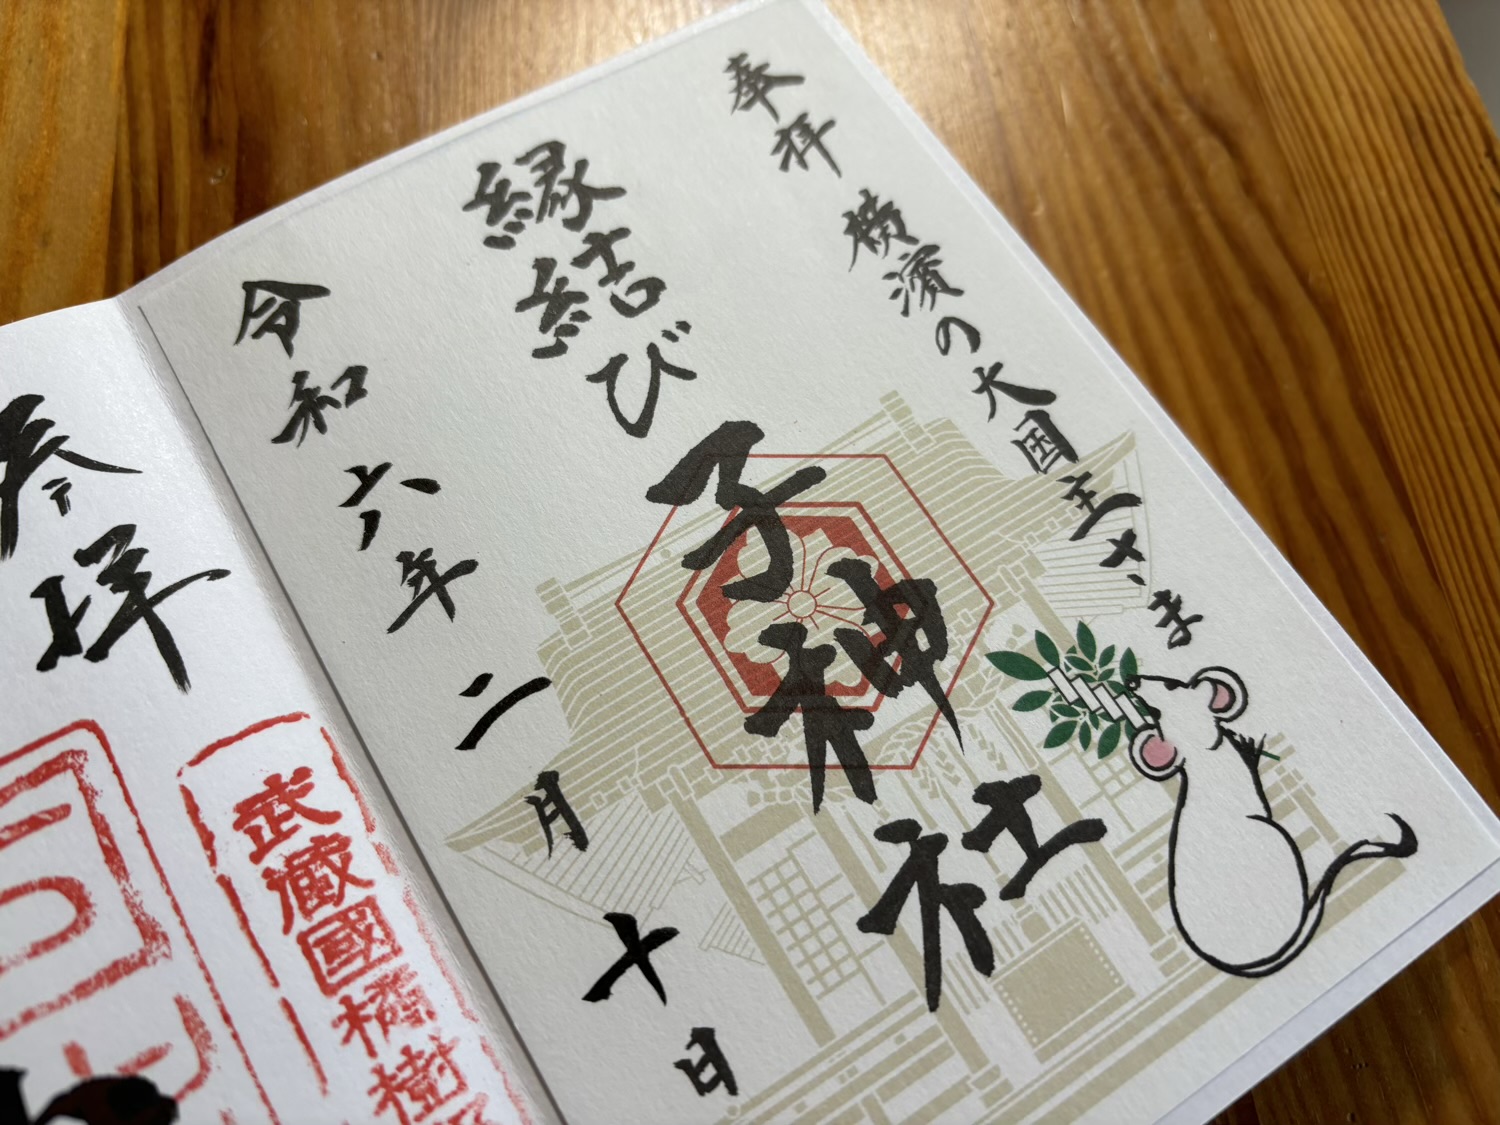 奉拝 横濱の大国主さま
縁結び 子神社
令和六年二月十日
参拝
武蔵國橘樹